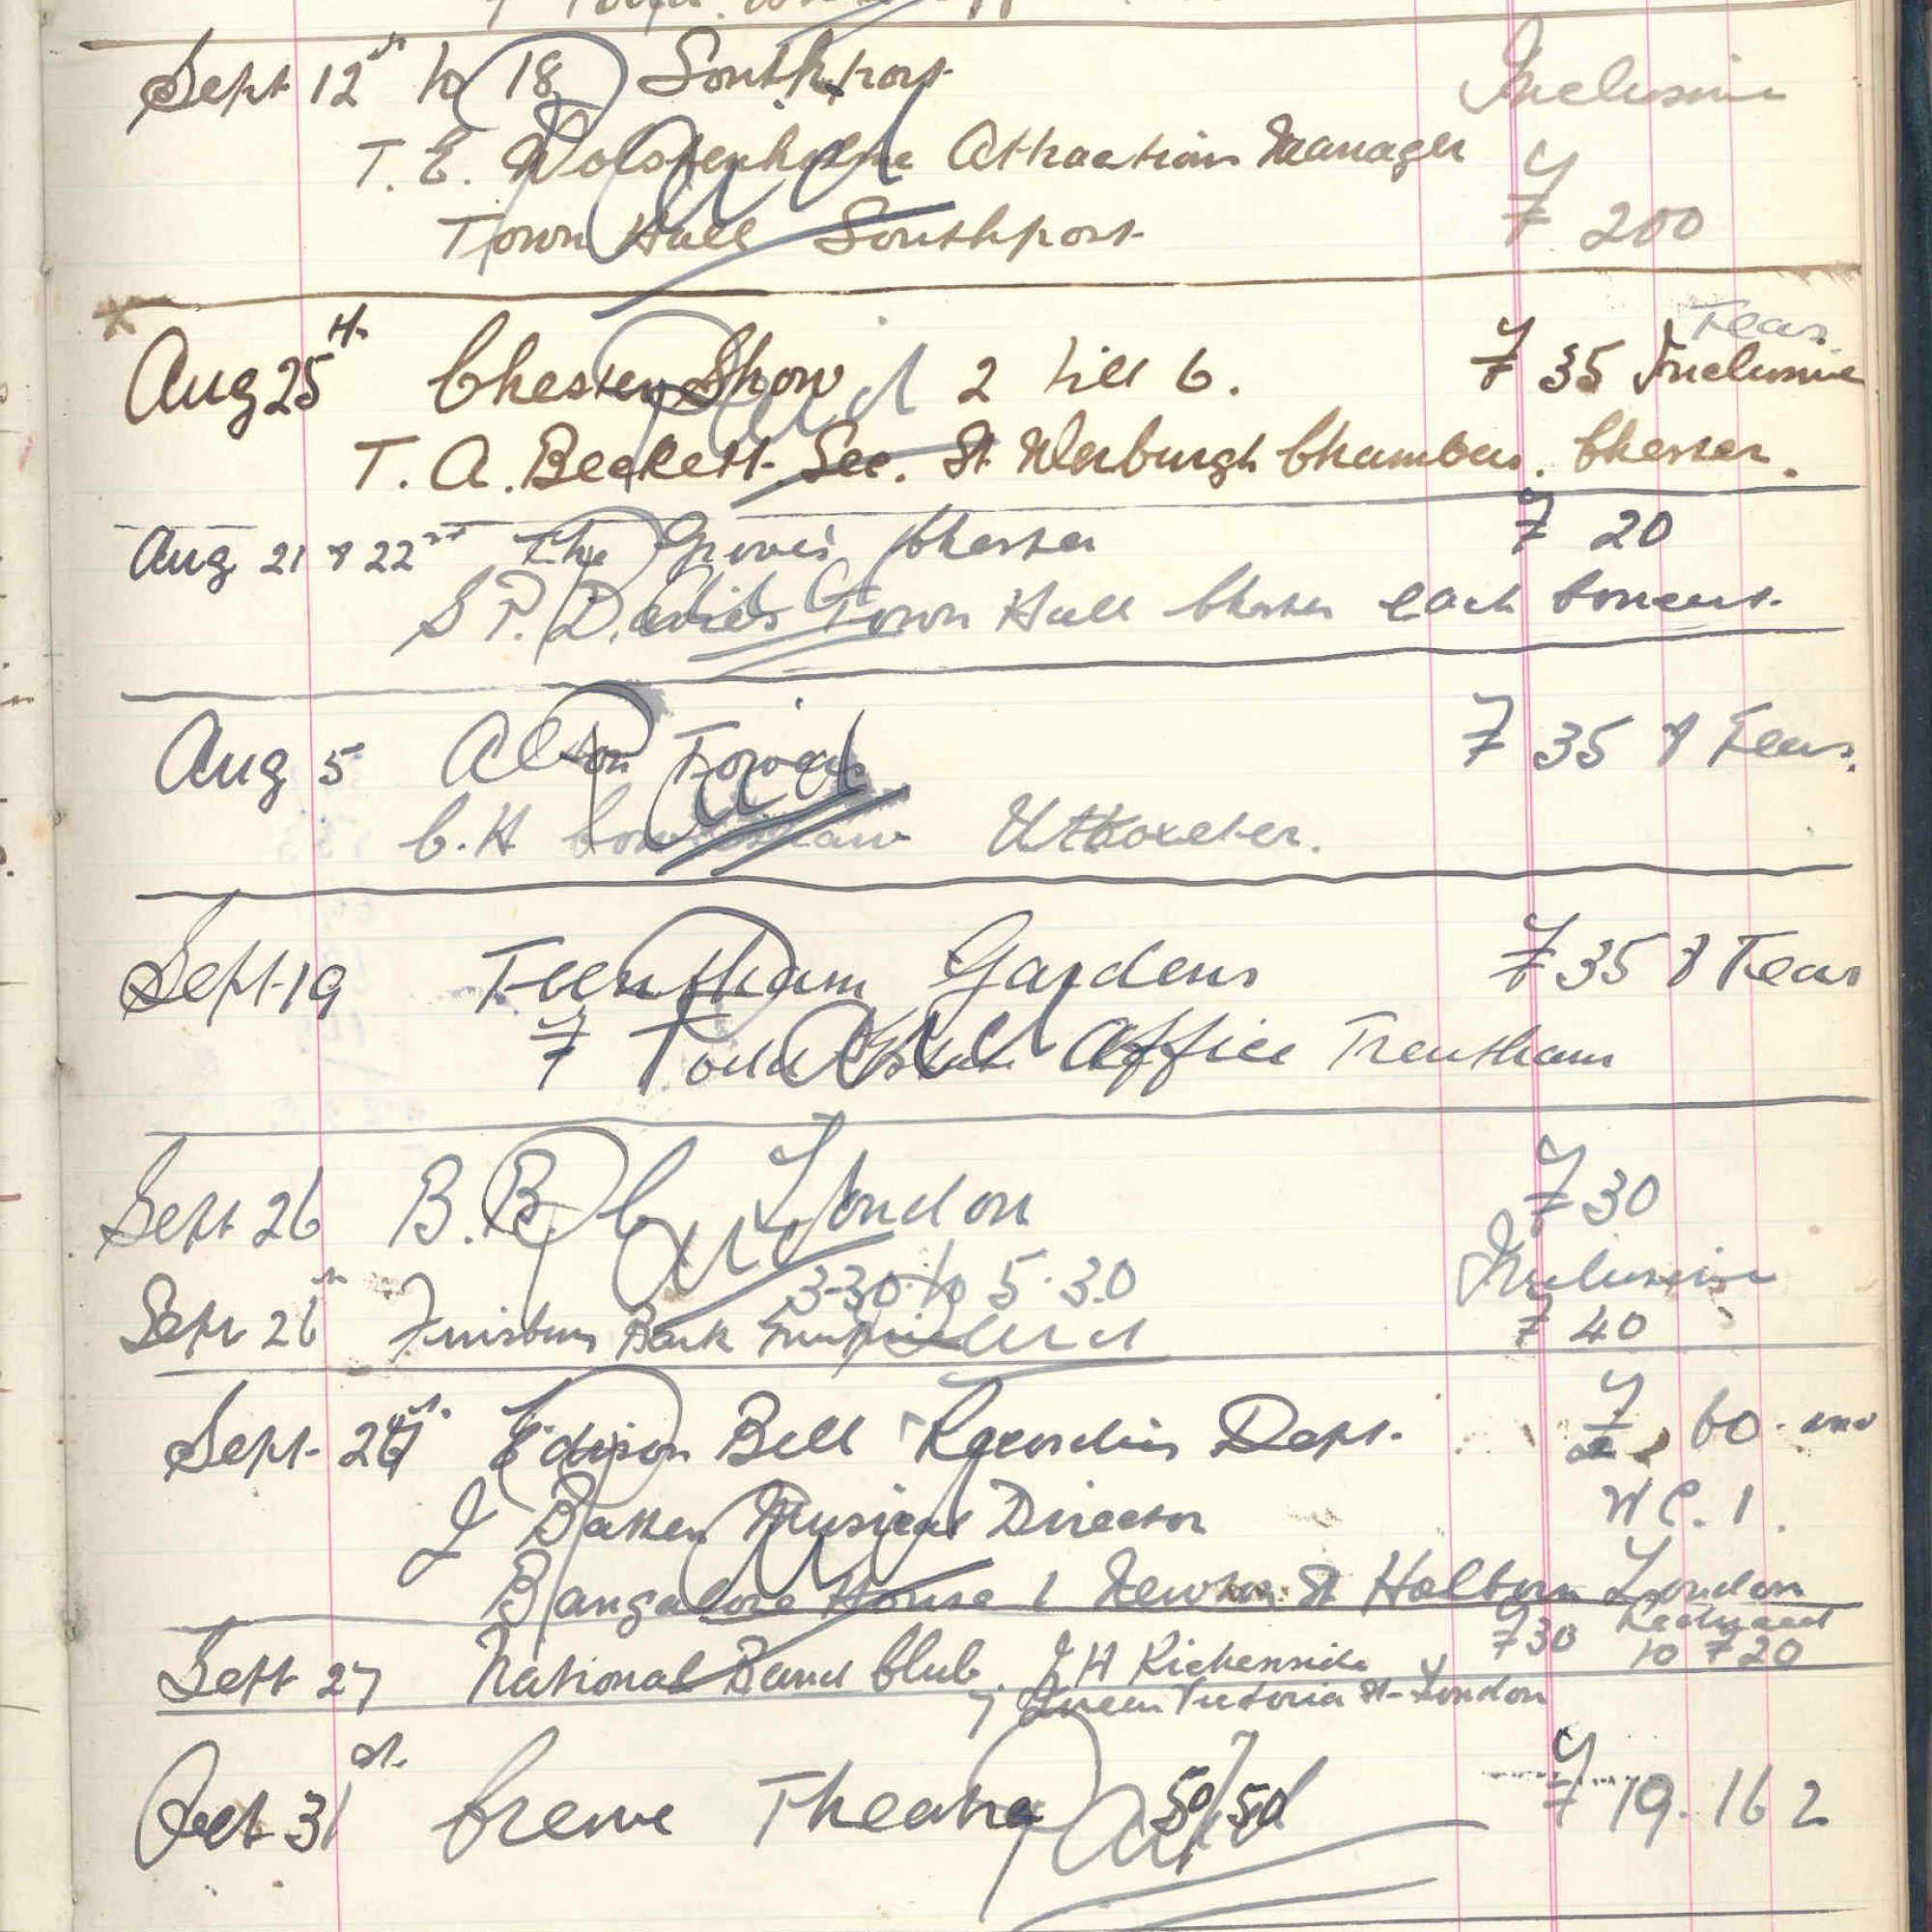 Sept 12th to 18 Southport Inclusive
T. E. Wolstenholme Attractions Manager
Town Hall Southport £ 200
Paid
Aug 25th Chester Show 2 till 6. £ 35 Inclusive Teas
T. A. Beckett. Sec. St Werburgh Chambers. Chester.
Paid
Aug 21 & 22nd The Groves Chester £ 20
S P. Davies Town Hall Chester each Concert.
Paid
Aug 5 Alton Towers £ 35 & Teas.
C. H Uttoxeter.
Paid
Sept 19 Trentham Gardens £ 35 & Teas
F Todd Estate Office Trentham
Paid
Sept 26 B. B. C London £ 30
Paid Inclusive
3-30 to 5.30
Sept 26th Finsbury Park Empire £ 40
Paid
Sept 26th Edison Bell Recording Dept. £ 60.
J Baker Musical Director W C. 1.
Bangalore House 1 Newton St Holborn London
Paid
Sept 27 National Band Club J H Kichenside £30 Reduced
7 Queen Victoria St London to £20
Oct 31st. Crewe Theatre 50/50 £ 19. 16 2
Paid